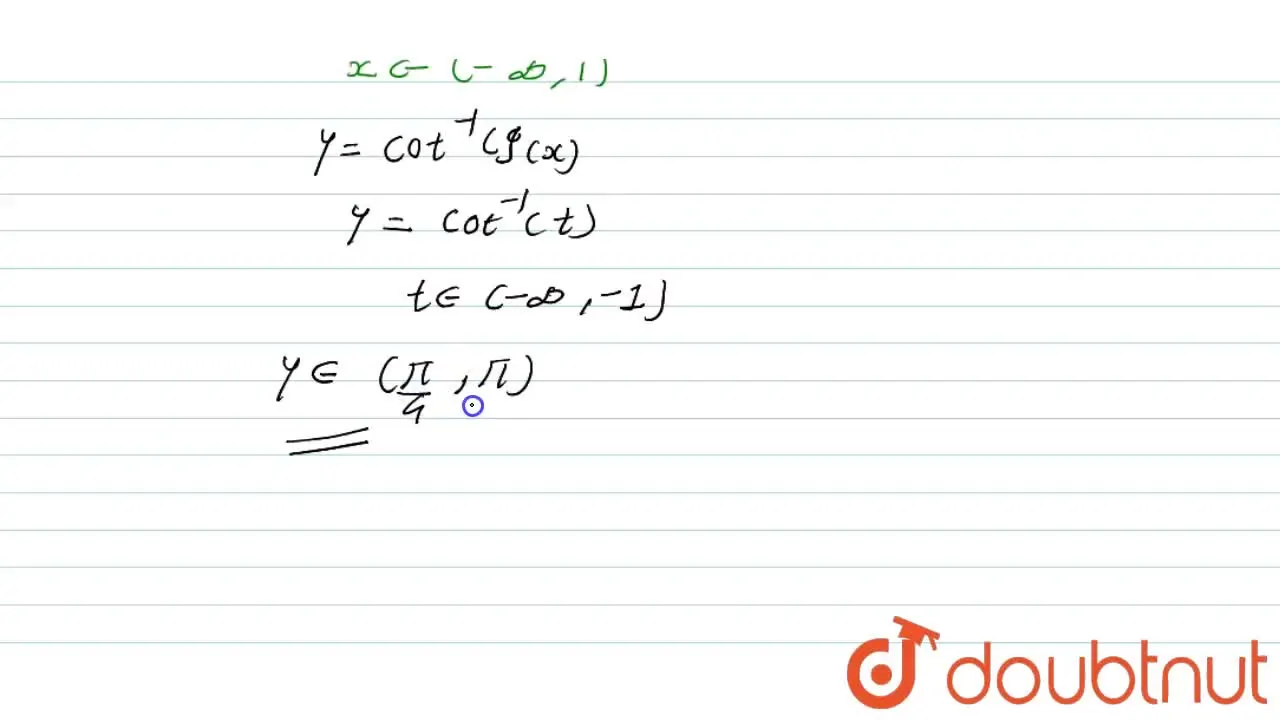 x ∈ (-∞, 1)
y = cot⁻¹(f(x)
y = cot⁻¹(t)
t ∈ (-∞, -1)
y ∈ (π/4, π)
doubtnut